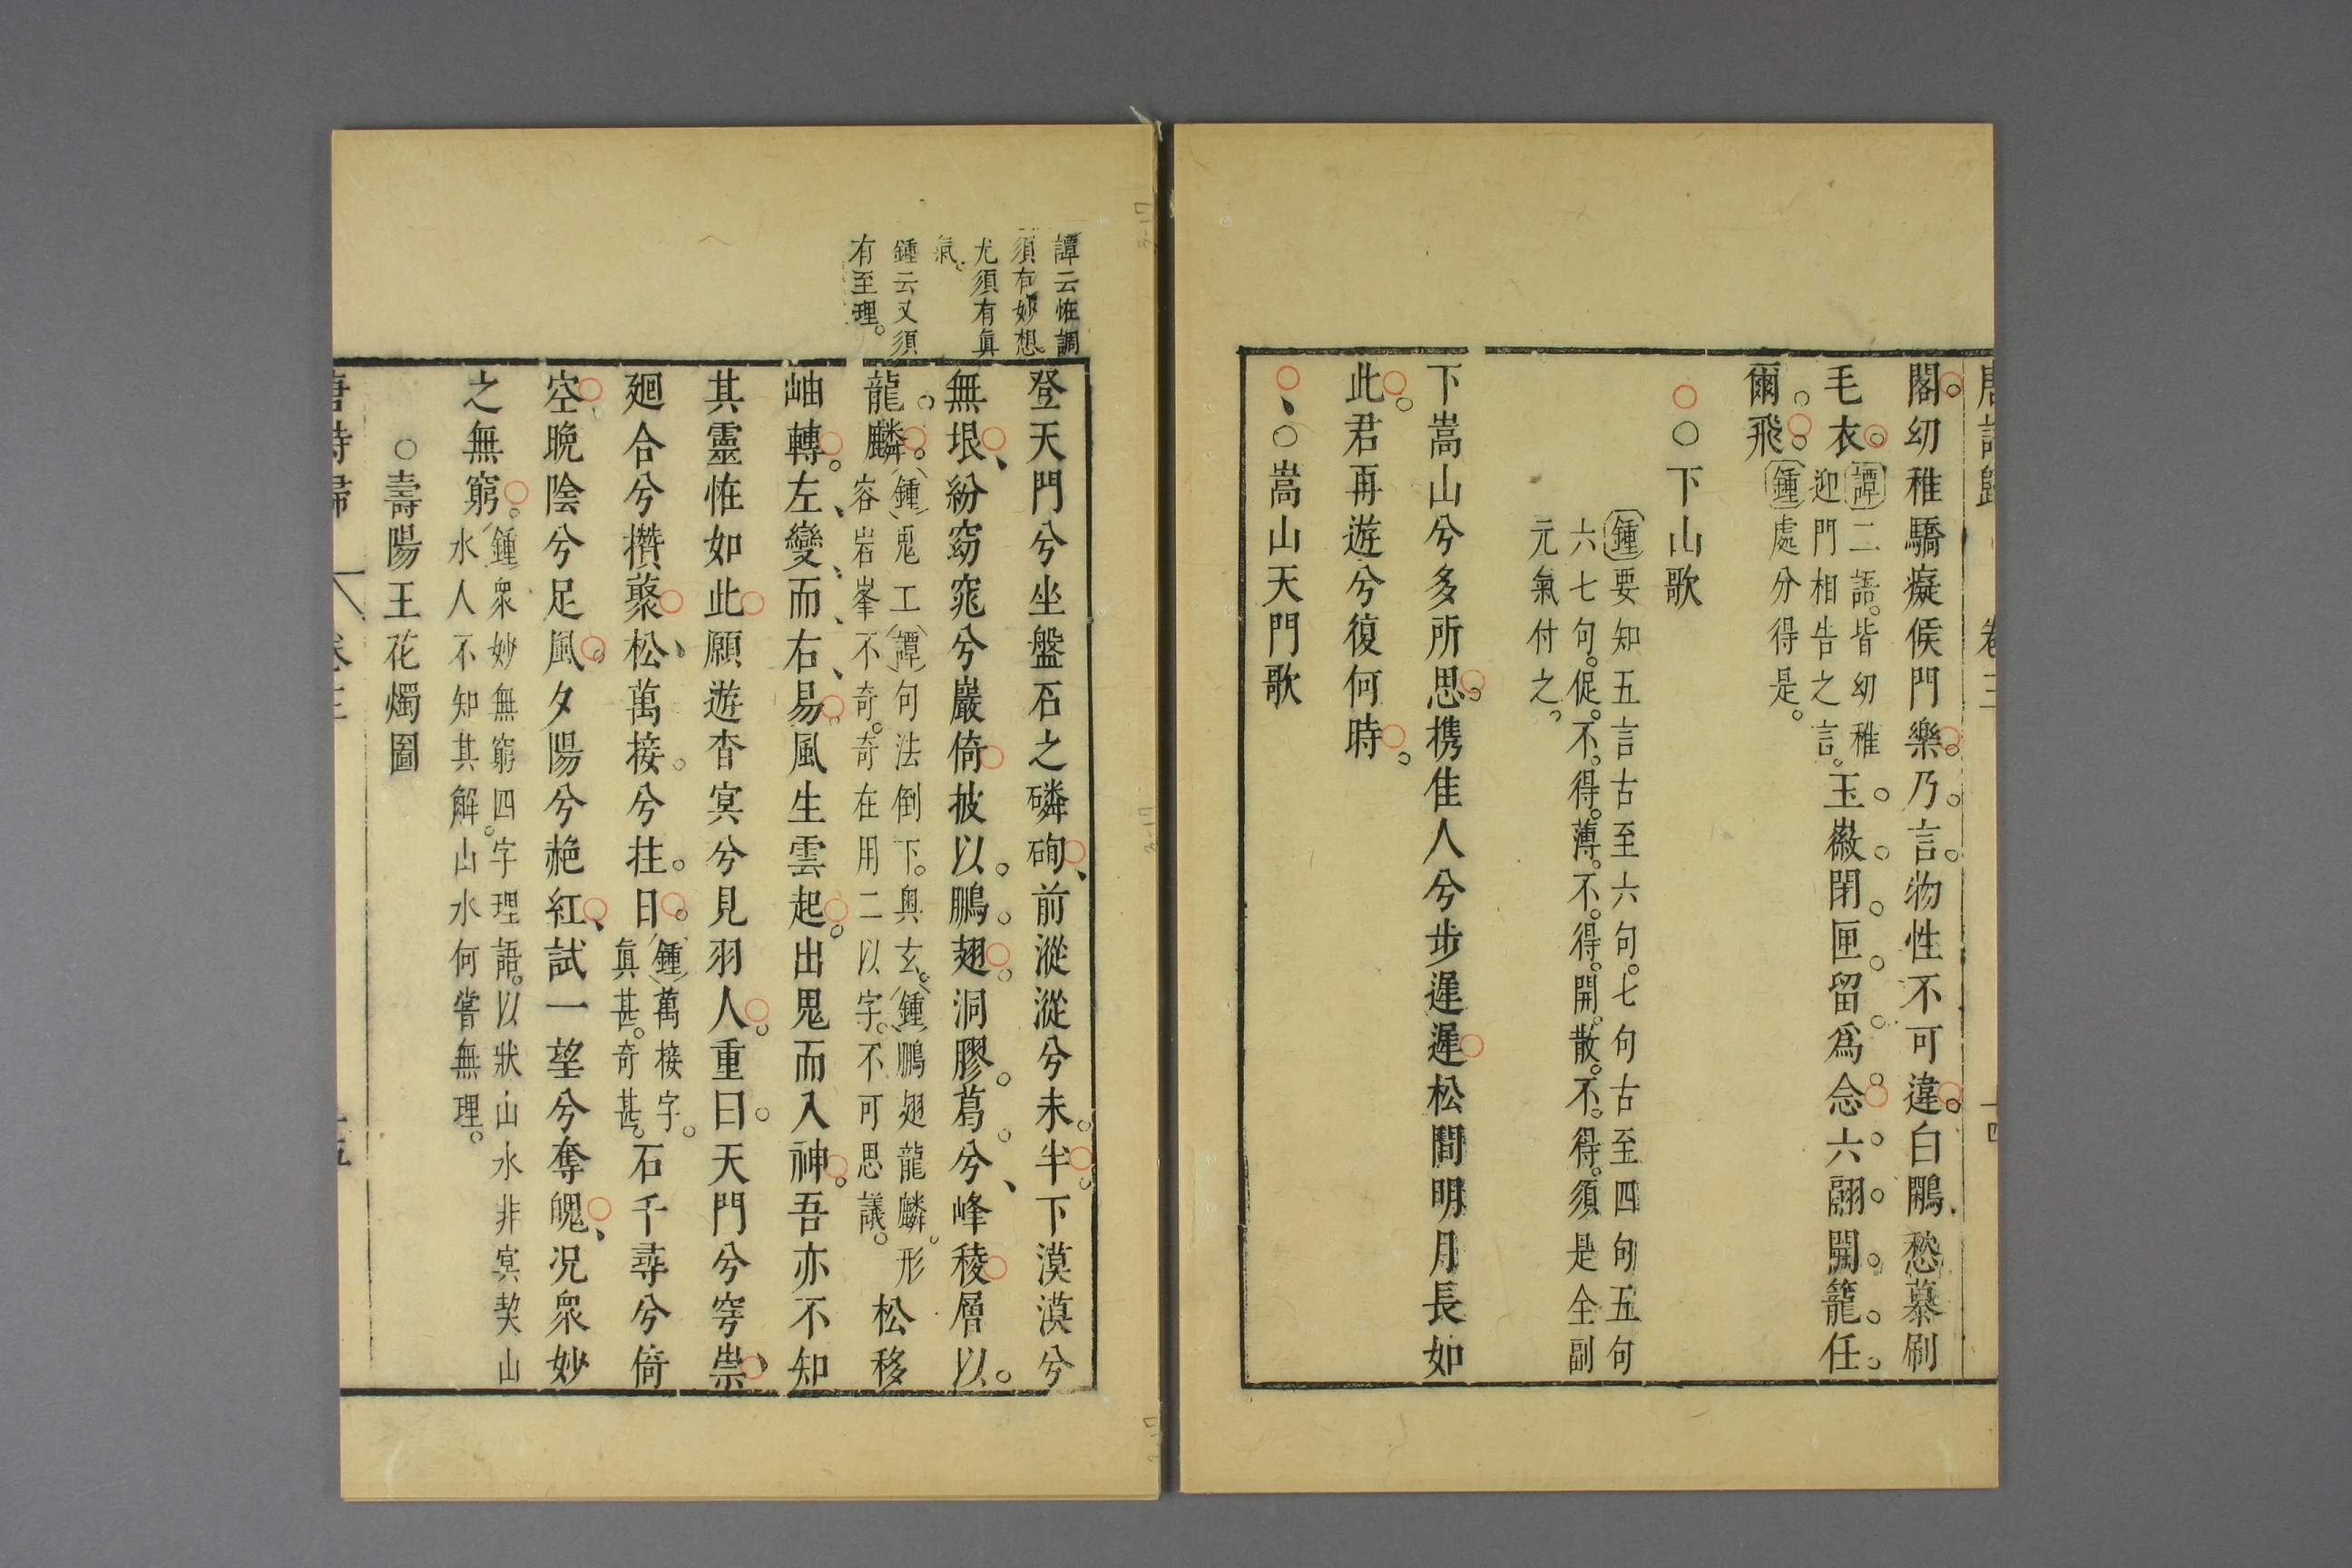 唐詩歸 卷三 十四
閣幼稚驕癡候門樂乃言物性不可違白鷴愁慕刷
毛衣
譚二語皆幼稚
迎門相告之言
玉徽閉匣留爲念六翮開籠任
爾飛
鍾處分得是
○下山歌
鍾要知五言古至六句七句古至四句五句
六七句促不得薄不得開散不得須是全副
元氣付之
下嵩山兮多所思携佳人兮步遲遲松間明月長如
此君再遊兮復何時
○嵩山天門歌
譚云恠調
須有妙想
尤須有眞
氣
鍾云又須
有至理
登天門兮坐盤石之磷砠前漎漎兮未半下漠漠兮
無垠紛窈窕兮巖倚披以鵬翅洞膠葛兮峰稜層以
龍鱗
鍾鬼工譚句法倒下奥玄鍾鵬翅龍鱗形
容岩峯不奇奇在用二以字不可思議
松移
岫轉左變而右易風生雲起出鬼而入神吾亦不知
其靈恠如此願遊杳冥兮見羽人重曰天門兮穹崇
廻合兮攢藂松萬接兮拄日
鍾萬接字
眞甚奇甚
石千尋兮倚
空晚陰兮足風夕陽兮赩紅試一望兮奪魄况衆妙
之無窮
鍾衆妙無窮四字理語以狀山水非冥契山
水人不知其解山水何嘗無理
○壽陽王花燭圖
唐詩歸 卷三 十五